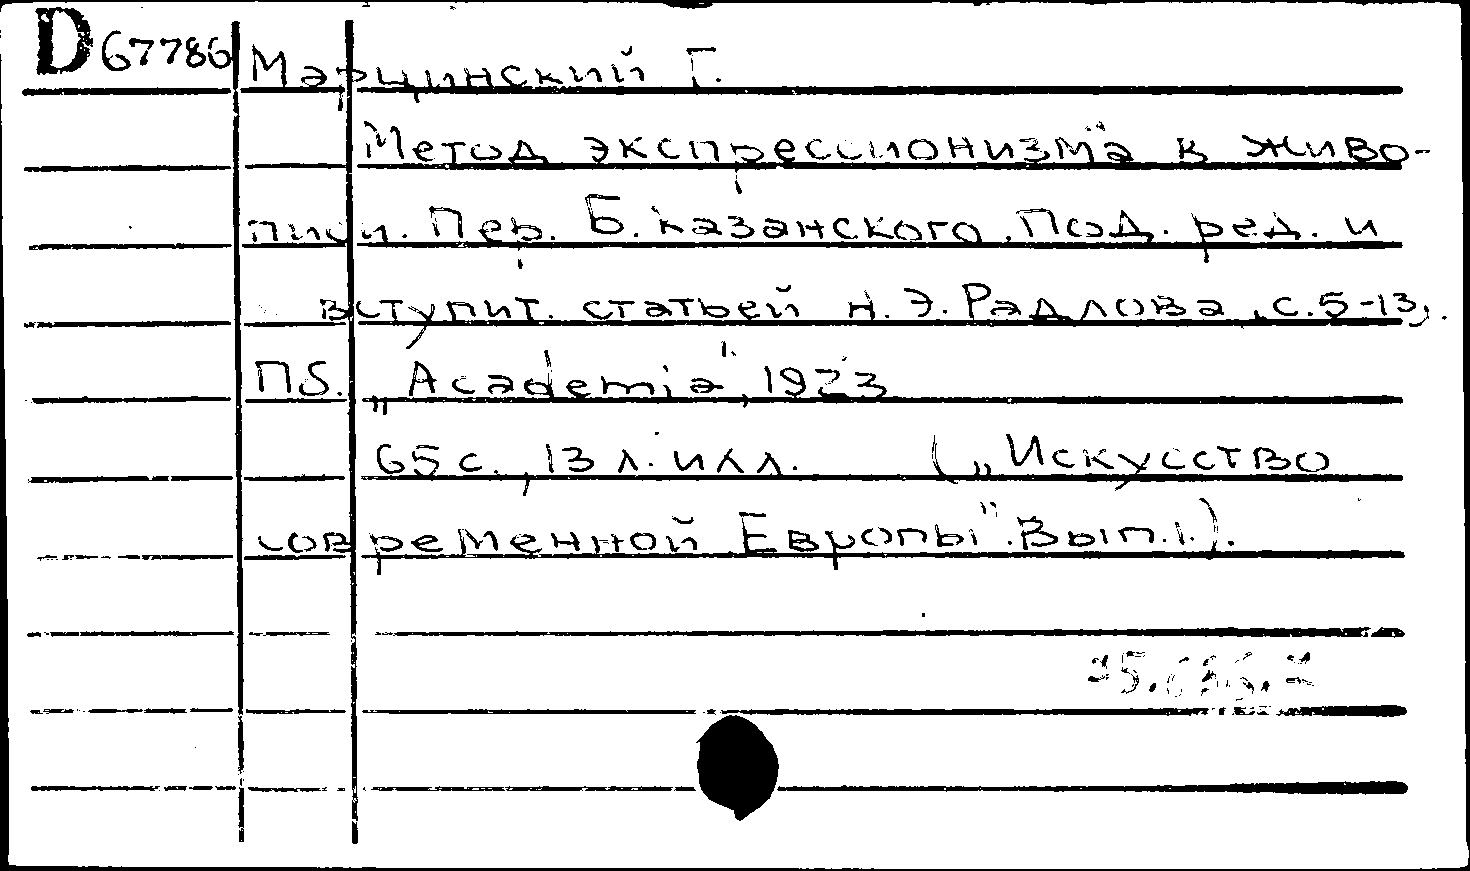 D 67786 Марцинский Г.
Метод экспрессионизма в живо-
писи. Пер. Б. Казанского. Под. ред. и
вступит. статьей Н. Э. Радлова, с. 5-13,.
ПБ. „Academia", 1923
65 с., 13 л. илл. („Искусство
современной Европы". Вып. 1.).